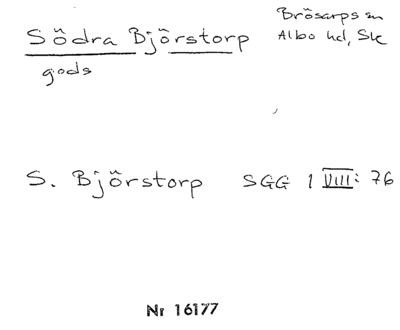 Södra Björstorp
Brösarps sn
Albo hd, Sk
gods
S. Björstorp SGG 1 VIII: 76
Nr 16177